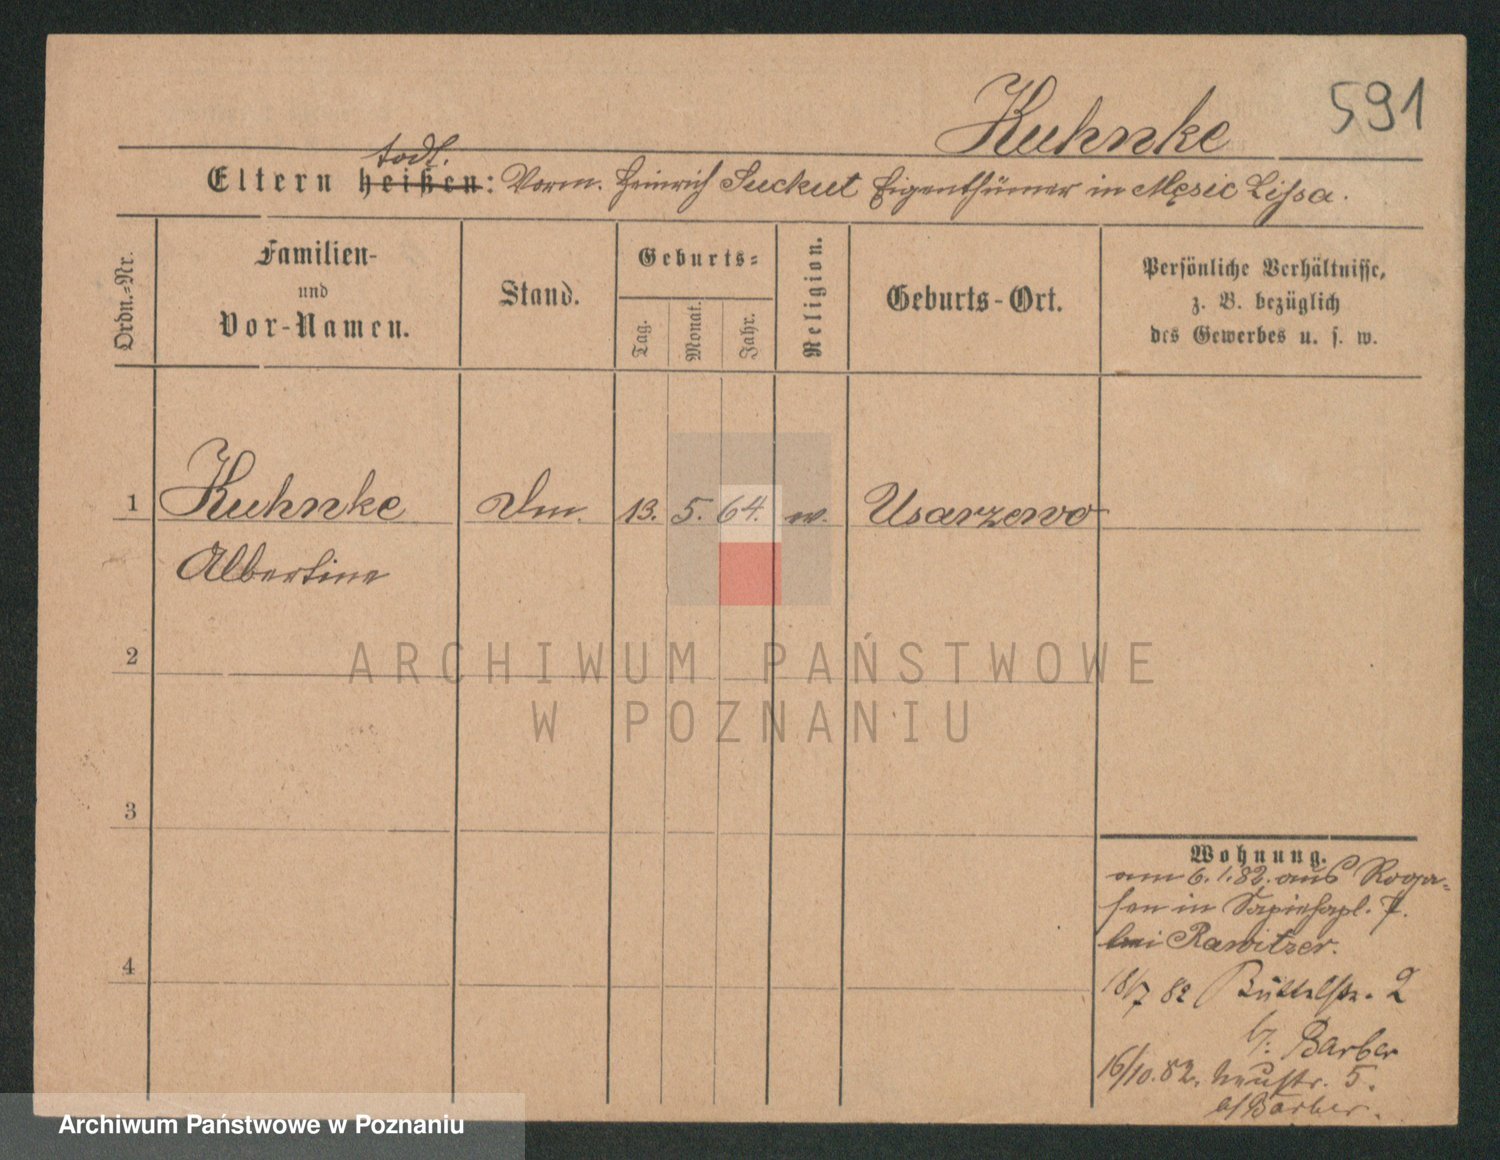 591
Kuhnke
todt.
Eltern heißen: Vorm. Heinrich Suckut Eigenthümer in Męsic Lissa.
Ordn.-Nr.
Familien-
und
Vor-Namen.
Stand.
Geburts-
Tag.
Monat.
Jahr.
Religion.
Geburts-Ort.
Persönliche Verhältnisse,
z. B. bezüglich
des Gewerbes u. s. w.
1 Kuhnke 13. 5. 64. Usarzewo
Albertine
2
3
4
Wohnung.
am 6.1.82. aus Roga-
sen in Sapiehapl. 7.
bei Rawitzer.
18/7 82 Büttelstr. 2
b: Barber
16/10.82. Neustr. 5.
b/Barber.
ARCHIWUM PAŃSTWOWE
W POZNANIU
Archiwum Państwowe w Poznaniu